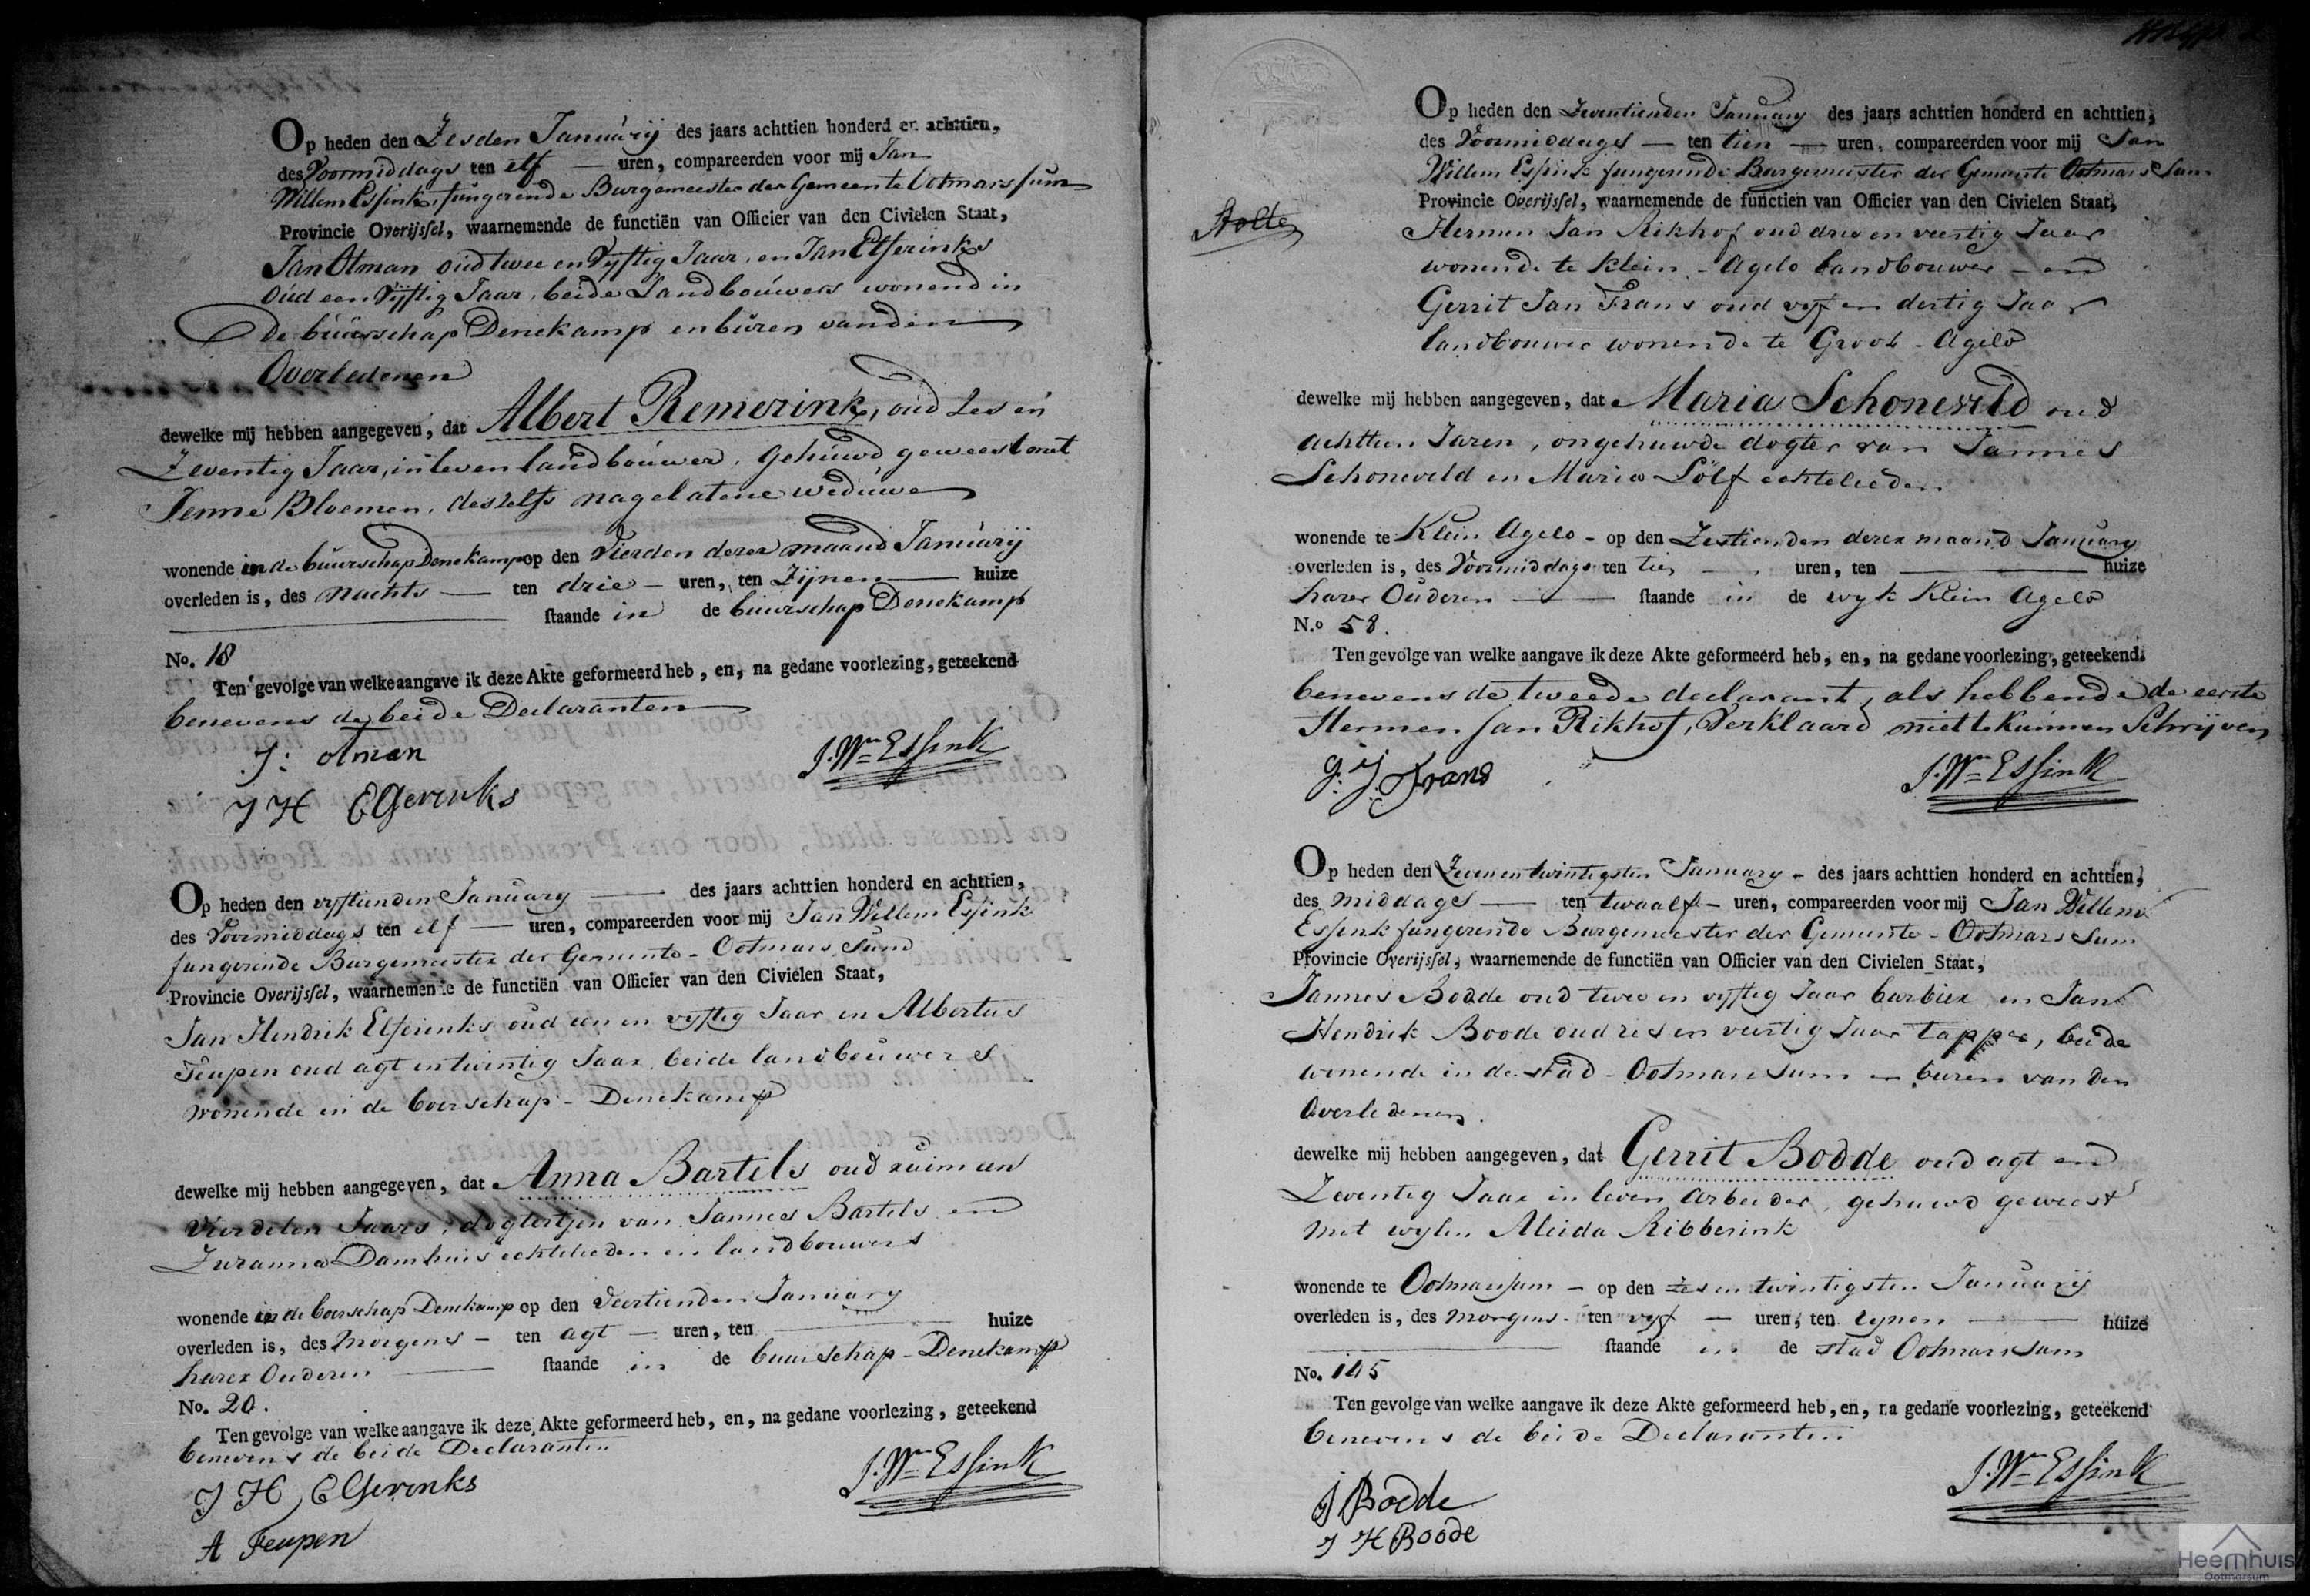 Op heden den Zesden Januarij des jaars achttien honderd en achttien,
des Voormiddags ten elf — uren, compareerden voor mij Jan
Willem Essink, fungerende Burgemeester der Gemeente Ootmarssum
Provincie Overijssel, waarnemende de functiën van Officier van den Civielen Staat,
Jan Otman oud twee en Vyftig Jaar, en Jan Elferinks
Oud een Vijftig Jaar, beide Landbouwers wonend in
de buurschap Denekamp en buren van den
Overledenen
dewelke mij hebben aangegeven, dat Albert Remerink, oud Zes en
Zeventig Jaar, in leven landbouwer, gehuwd geweest met
Jenne Bloemen, deszelfs nagelatene weduwe
wonende in de buurschap Denekamp op den Vierden dezer maand Januarij
overleden is, des nachts — ten drie — uren, ten Zijnen — huize
staande in de buurschap Denekamp
No. 18
Ten gevolge van welke aangave ik deze Akte geformeerd heb, en, na gedane voorlezing, geteekend
benevens de beide Declaranten
J: otman
J. Wm Essink
J H Elferinks
Op heden den vyftienden January — des jaars achttien honderd en achttien,
des Voormiddags ten elf — uren, compareerden voor mij Jan Willem Essink
fungerende Burgemeester der Gemeente - Ootmarssum
Provincie Overijssel, waarnemende de functiën van Officier van den Civielen Staat,
Jan Hendrik Elferinks oud een en vyftig Jaar en Albertus
Feupen oud agt en twintig Jaar beide landbouwers
wonende in de boerschap - Denekamp
dewelke mij hebben aangegeven, dat Anna Bartels oud ruim een
Vierdelen Jaars, dogtertjen van Jannes Bartels en
Zuranna Damhuis echtelieden en landbouwers
wonende in de boerschap Denekamp op den Veertienden January
overleden is, des morgens - ten agt — uren, ten — huize
harer Ouderen — staande in de buurschap - Denekamp
No. 20.
Ten gevolge van welke aangave ik deze Akte geformeerd heb, en, na gedane voorlezing, geteekend
benevens de beide Declaranten
J H Elferinks
J. Wm Essink
A Feupen
Stolte
Op heden den Zeventienden January des jaars achttien honderd en achttien,
des Voormiddags — ten tien — uren, compareerden voor mij Jan
Willem Essink fungerende Burgemeister der Gemeente Ootmarssum
Provincie Overijssel, waarnemende de functien van Officier van den Civielen Staat,
Hermen Jan Rikhof oud drie en veertig Jaar
wonende te Klein - Agelo landbouwer - en
Gerrit Jan Frans oud vyf en dertig Jaar
landbouwer wonende te Groot - Agelo
dewelke mij hebben aangegeven, dat Maria Schoneveld oud
achttien Jaren, ongehuwde dogter van Jannes
Schoneveld en Maria Lölf echtelieden
wonende te Klein Agelo - op den Zestienden dezer maand January
overleden is, des Voormiddags ten tien — uren, ten — huize
harer Ouderen — staande in de wyk Klein Agelo
N.o 58.
Ten gevolge van welke aangave ik deze Akte geformeerd heb, en, na gedane voorlezing, geteekend.
benevens de tweede declarant, als hebbende de eerste
Hermen Jan Rikhof, Verklaard niet te kunnen Schrijven
G: J. Frans
J. Wm Essink
Op heden den Zeven en twintigsten January - des jaars achttien honderd en achttien,
des middags — ten twaalf - uren, compareerden voor mij Jan Willem
Essink fungerende Burgemeester der Gemeente - Ootmarssum
Provincie Overijssel, waarnemende de functiën van Officier van den Civielen Staat,
Jannes Bodde oud twee en vyftig Jaar barbier en Jan
Hendrik Boode oud zes en veertig Jaar tapper, beide
wonende in de stad - Ootmarssum en buren van den
Overledenen.
dewelke mij hebben aangegeven, dat Gerrit Bodde oud agt en
Zeventig Jaar in leven Arbeider, gehuwd geweest
met wylen Aleida Ribberink
wonende te Ootmarssum - op den zes en twintigsten Januarij
overleden is, des morgens - ten vyf — uren, ten zynen — huize
staande in de stad Ootmarssum
No. 145
Ten gevolge van welke aangave ik deze Akte geformeerd heb, en, na gedane voorlezing, geteekend
benevens de beide Declaranten
J Bodde
J. Wm Essink
J H Boode
Heemhuis
Ootmarsum